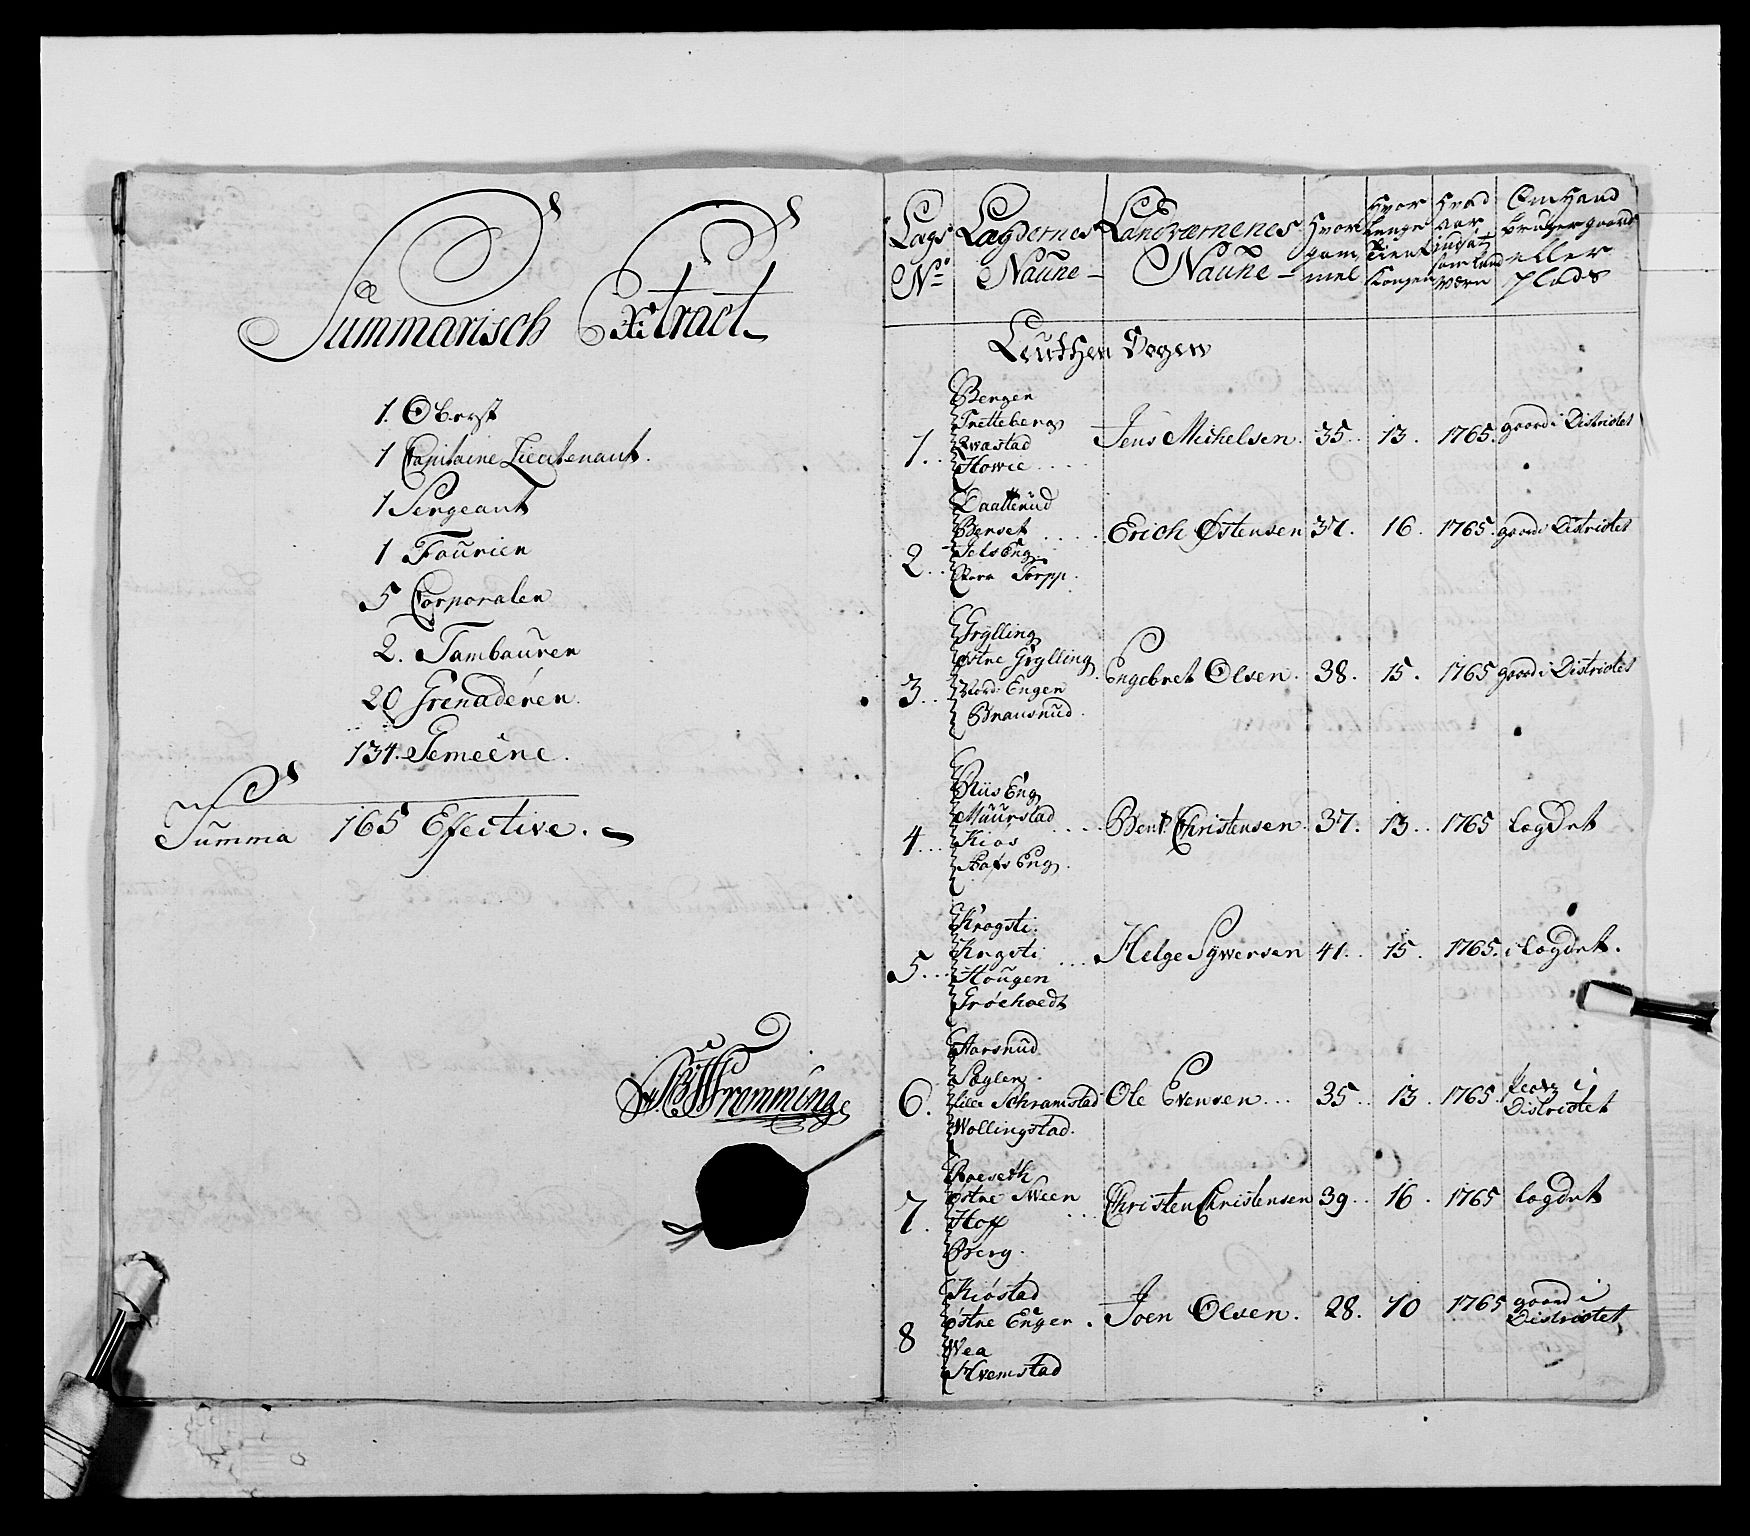 Summarisch Extract
1. Oberst
1 Capitaine Lieutenant.
1 Sergeant
1 Fourier
5 Corporalen
2. Tambouren
20 Grenaderen.
134. Gemeene.
Summa 165 Effective.
Lægs No. Lægdernes Naune Landværnenes Naune Hvor gammel Hvor lenge tient Kongen Hvad aar indsat som land værn Om Hand bruger gaard eller plads
Leuthen Sogen
1. Bergen
Tretteberg
Qvastad
Howie
Jens Michelsen. 35. 13. 1765. gaard i Districtet
2. Daatterud
Berset
Jels Eng
Torpp.
Erich Østensen 37. 16. 1765. gaard i Districtet
3. Grylling
østre Grylling
Nord Enger
Bransrud.
Engebret Olsen. 38. 15. 1765 gaard i Districtet
4. Riis Eng
Muurstad
Kios
Eng.
Bent Christensen. 37. 13. 1765 lægdet
5. Krogsti.
Krogsti
Hougen
Grøehoedt
Helge Sywersen 41. 15. 1765. i lægdet.
6. Aarsrud
Sæglen.
lille Schramstad
Wollingstad.
Ole Evensen 35. 13. 1765. i Districtet
7. Roeseth
østre Sween
Hoff
Berg.
Christen Christensen 39. 16. 1765 lægdet
8 Kiøstad
østre Enger.
Vea
Hvemstad
Joen Olsen. 28. 10 1765 gaard i Districtet